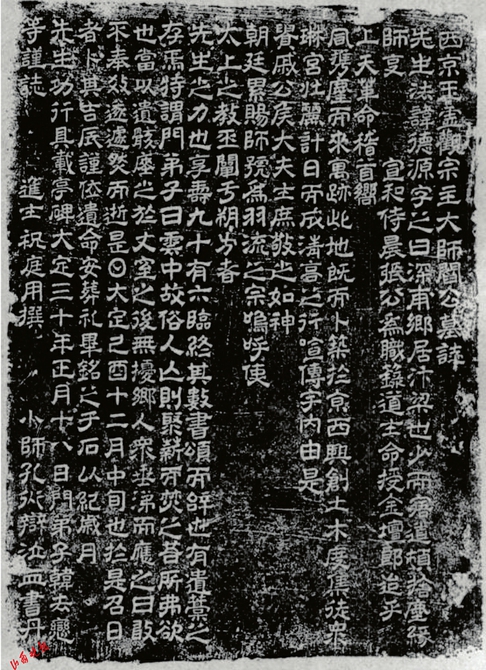 西京玉虛觀宗主大師閻公墓誌
先生法諱德源字之曰深甫鄉居汴梁也少而居道捨廛緣
師受 宣和侍晨張公為職籙道士命授金壇郎迨乎
上天革命稽首嚮
風攜塵而來寓跡此地既而卜築於京西興創土木度集徒眾
琳宮壯麗計日而成清高之行喧傳宇內由是
貴戚公侯大夫士庶敬之如神
朝廷累賜師號為羽流之宗嗚呼使
太上之教丕闡于朔方者
先生之力也享壽九十有六臨終其數書頌而辭世有遺藁之
存焉特謂門弟子曰雲中故俗人亡則聚薪而焚之吾所弗欲
也當以遺骸瘞之於丈室之後無擾鄉人眾垂涕而應之曰敢
不奉教遂遽然而逝是日大定己酉十二月中旬也於是召日
者卜其吉辰謹依遺命安葬礼畢銘之于石以紀歲月
先生功行具載亭碑大定三十年正月十八日門弟子韓去戀
等謹誌 進士祝庭用撰 小師孔辯泣血書丹